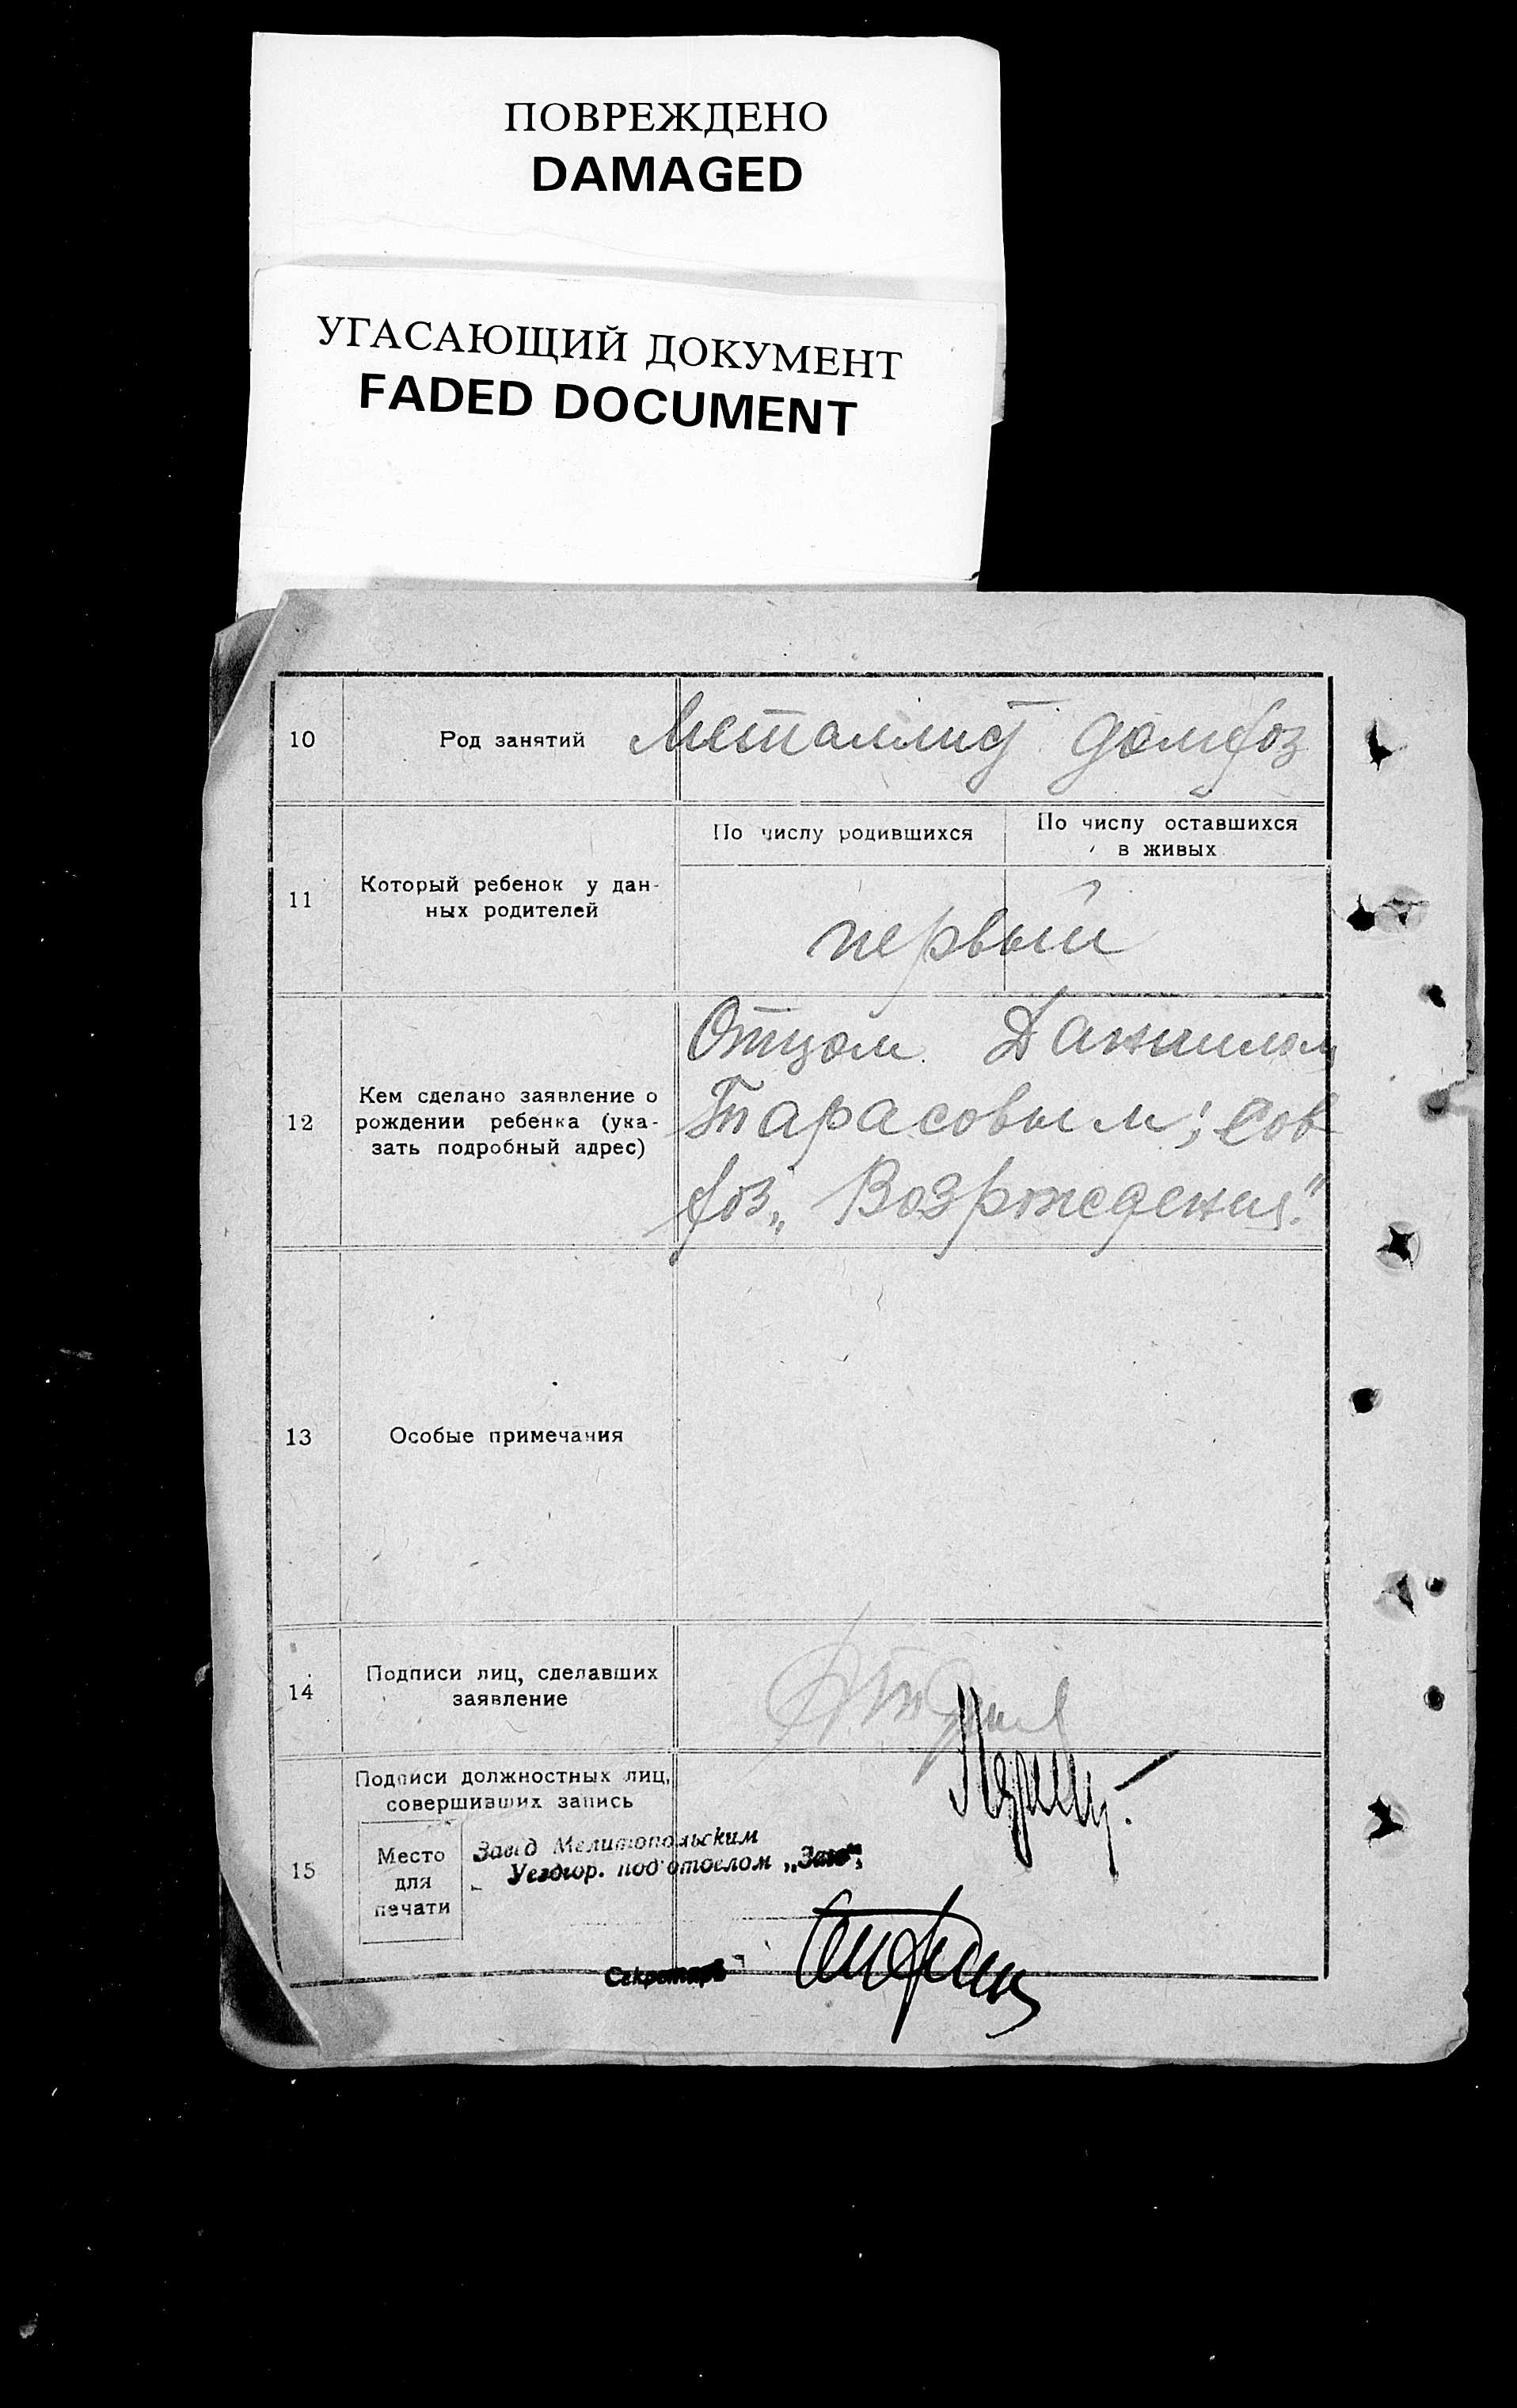 ПОВРЕЖДЕНО
DAMAGED
УГАСАЮЩИЙ ДОКУМЕНТ
FADED DOCUMENT
10
Род занятий
Металлист домхоз
11
Который ребенок у дан-
ных родителей
По числу родившихся
По числу оставшихся
в живых
первый
12
Кем сделано заявление о
рождении ребенка (ука-
зать подробный адрес)
Отцом Даниилом
Тарасовым; Сов
хоз „Возрождения"
13
Особые примечания
14
Подписи лиц, сделавших
заявление
15
Подписи должностных лиц,
совершивших запись
Место
для
печати
Завед Мелитопольским
Уездгор. подотделом „Загс"
Секретарь